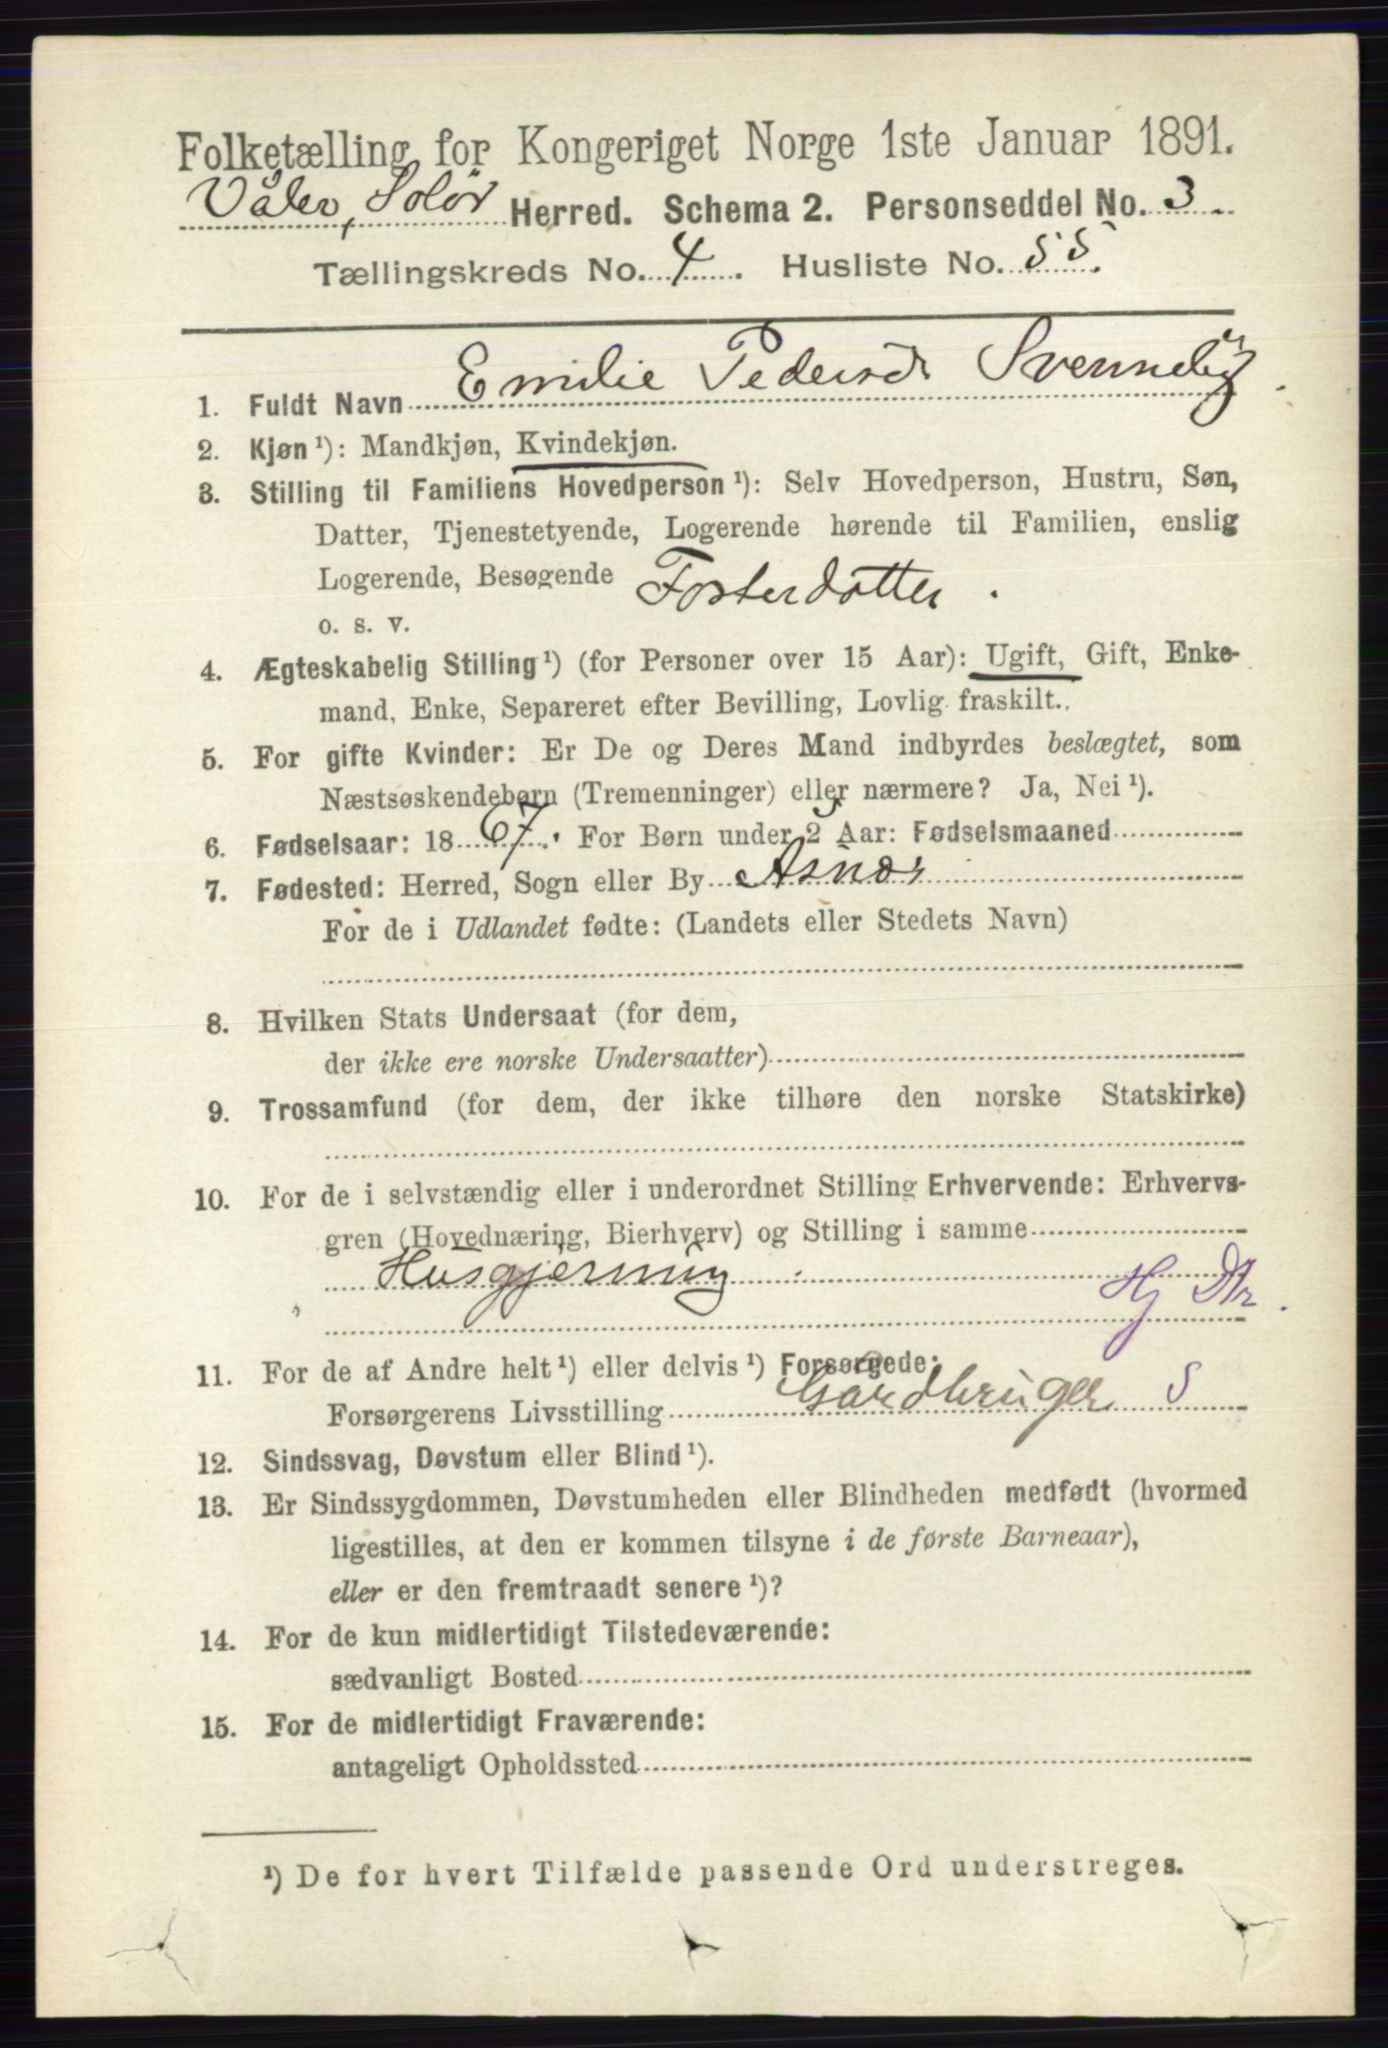 Folketælling for Kongeriget Norge 1ste Januar 1891.
Våler, Solør Herred. Schema 2. Personseddel No. 3.
Tællingskreds No. 4. Husliste No. 55.
1. Fuldt Navn Emilie Pedersd.
2. Kjøn ¹): Mandkjøn, Kvindekjøn.
3. Stilling til Familiens Hovedperson ¹): Selv Hovedperson, Hustru, Søn,
Datter, Tjenestetyende, Logerende hørende til Familien, enslig
Logerende, Besøgende Fosterdatter.
o. s. v.
4. Ægteskabelig Stilling ¹) (for Personer over 15 Aar): Ugift, Gift, Enke-
mand, Enke, Separeret efter Bevilling, Lovlig fraskilt.
5. For gifte Kvinder: Er De og Deres Mand indbyrdes beslægtet, som
Næstsøskendebørn (Tremenninger) eller nærmere? Ja, Nei ¹).
6. Fødselsaar: 18 67. For Børn under 2 Aar: Fødselsmaaned
7. Fødested: Herred, Sogn eller By Asnæs
For de i Udlandet fødte: (Landets eller Stedets Navn)
8. Hvilken Stats Undersaat (for dem,
der ikke ere norske Undersaatter)
9. Trossamfund (for dem, der ikke tilhøre den norske Statskirke)
10. For de i selvstændig eller i underordnet Stilling Erhvervende: Erhvervs-
gren (Hovednæring, Bierhverv) og Stilling i samme
Husgjerning
Hj Dtr.
11. For de af Andre helt ¹) eller delvis ¹) Forsørgede:
Forsørgerens Livsstilling Gårdbruger S
12. Sindssvag, Døvstum eller Blind ¹).
13. Er Sindssygdommen, Døvstumheden eller Blindheden medfødt (hvormed
ligestilles, at den er kommen tilsyne i de første Barneaar),
eller er den fremtraadt senere ¹)?
14. For de kun midlertidigt Tilstedeværende:
sædvanligt Bosted
15. For de midlertidigt Fraværende:
antageligt Opholdssted
¹) De for hvert Tilfælde passende Ord understreges.